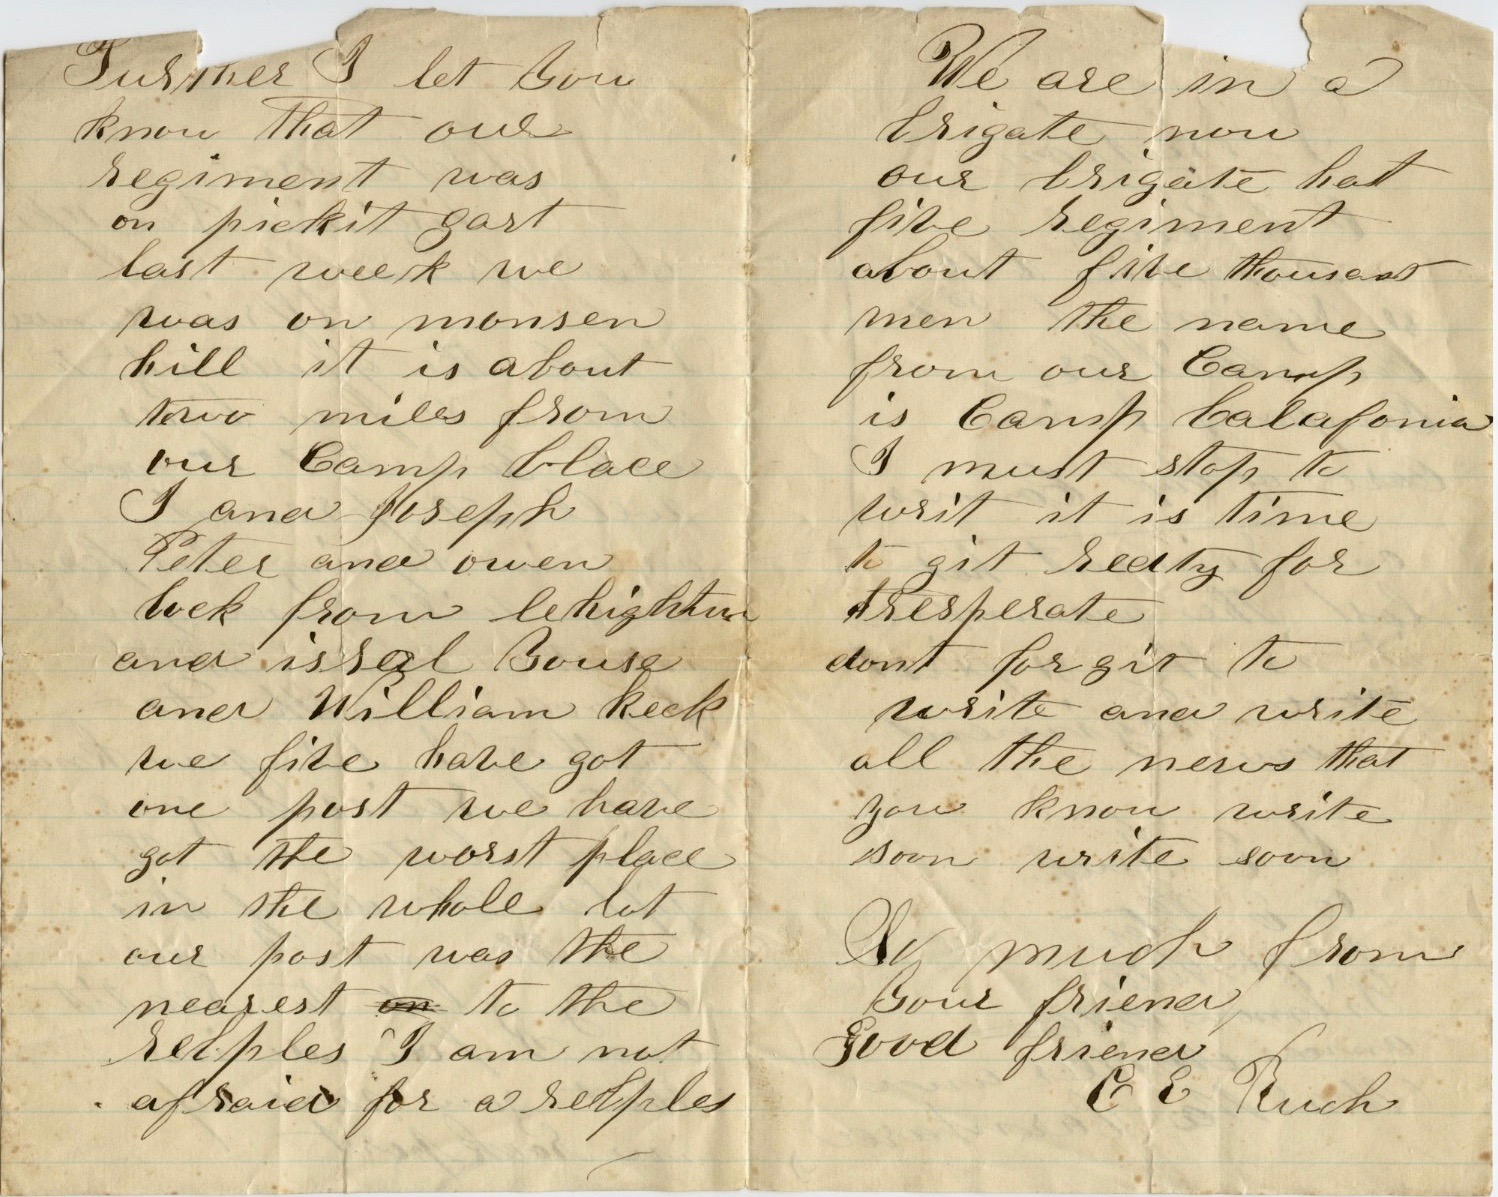 Further I let You
know that our
regiment was
on pickit gart
last week we
was on monsen
hill it is about
two miles from
our Camp blace
I and Joseph
Peter and owen
bek from lehighton
and israel Bouse
and William keck
we five have got
one post we have
got the worst place
in the whole lot
our post was the
nearest on to the
rebples I am not
afraid for a rebples
We are in a
brigate now
our brigate hat
five regiment
about five thousant
men the name
from our Camp
is Camp Calafonia
I must stop to
writ it is time
to git redty for
tresperate
dont forgit to
write and write
all the news that
you know write
soon write soon
So much from
Your friend
Good friend
C E Ruch